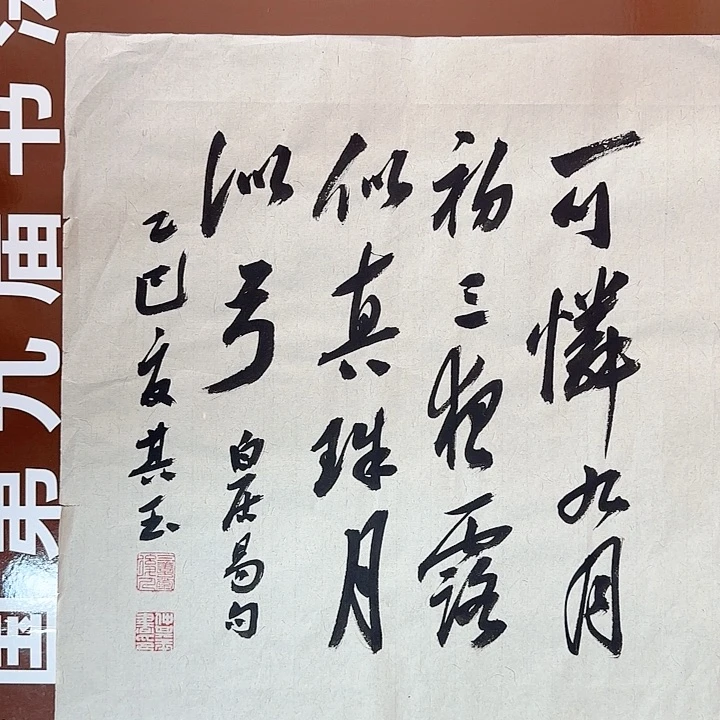 可憐九月
初三夜露
似真珠月
似弓
白居易句
乙巳夏其玉
国第九届书法